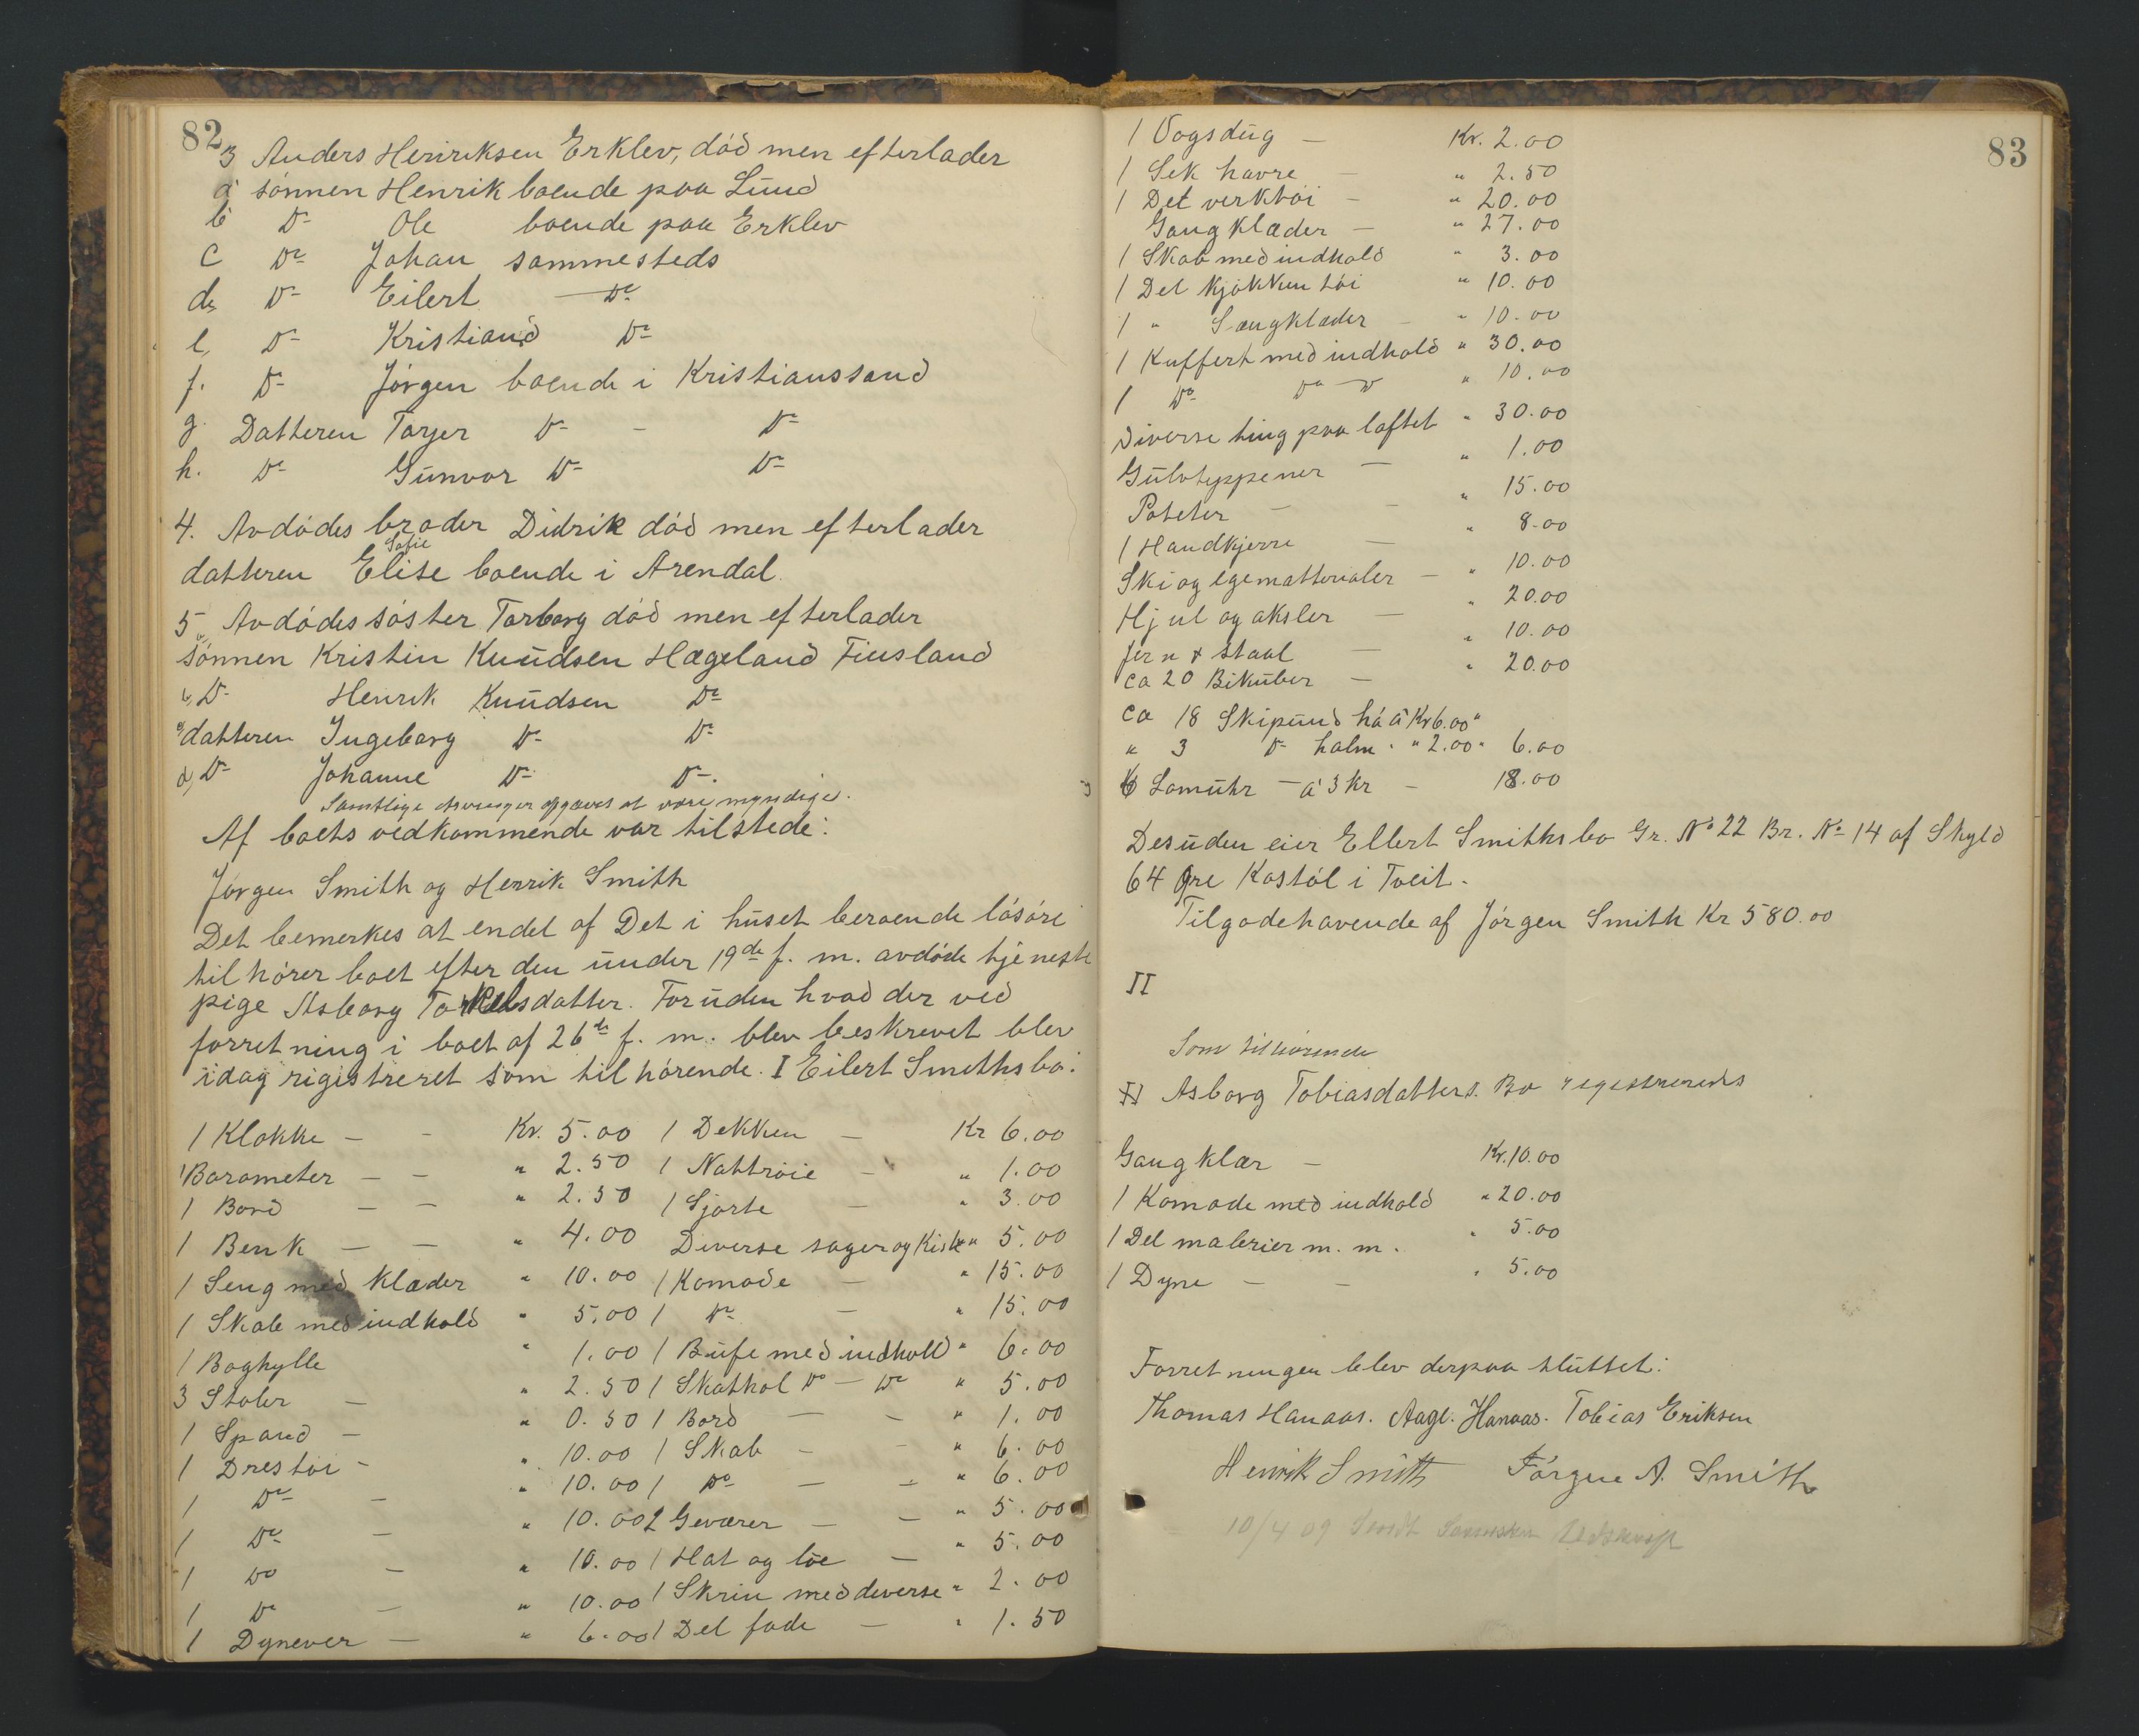 82
3 Anders Henriksen Erklev, død men efterlader
a sønnen Henrik boende paa Lund
b Do Ole boende paa Erklev
c Do Johan sammesteds
d, Do Eilert — Do
e, Do Kristian Do
f. Do Jørgen boende i Kristianssand
g. Datteren Tarjer Do - Do
h. Do Gunvor Do Do
4. Avdødes broder Didrik død men efterlader
Sofie
datteren Elise boende i Arendal.
5, Avdødes søster Torborg død men efterlader
sønnen Kristin Knudsen Hægeland Finsland
b, Do Henrik Knudsen Do
c, datteren Ingeborg Do Do
d, Do Johanne Do Do.
Samtlige arvinger opgaves at være myndige.
Af boets vedkommende var tilstede:
Jørgen Smith og Henrik Smith
Det bemerkes at endel af Det i huset beroende løsøre
tilhører boet efter den under 19de f. m. avdøde tjeneste
pige Asborg Torkelsdatter. Foruden hvad der ved
forretning i boet af 26de f. m. blev beskrevet blev
idag rigistreret som tilhørende. I Eilert Smithsbo:
1 Klokke — - Kr. 5.00 1 Dekken — Kr 6.00
1 Barometer — - " 2.50 1 Nattrøie - " 1.00
1 Bord — - " 2.50 1 Sjorte - " 3.00
1 Benk — — " 4.00 Diverse sager og Kiste " 5.00
1 Seng med klæder " 10.00 1 Komode — " 15.00
1 Skab med indhold " 5.00 1 Do — " 15.00
1 Boghylle " 1.00 1 Bufe med indhold " 6.00
3 Stoler — " 2.50 1 Skathol Do — Do " 5.00
1 Spand — " 0.50 1 Bord — - " 1.00
1 Drestøi - " 10.00 1 Skab - - " 6.00
1 Do - " 10.00 1 Do — - " 6.00
1 Do - " 10.00 2 Geværer — - " 5.00
1 Do - " 10.00 1 Hat og lue — " 5.00
1 Do - " 10.00 1 Skrin med deverse " 2.00
1 Dynever — " 6.00 1 Del fade — " 1.50
83
1 Vogsdug — Kr. 2.00
1 Sek havre - " 2.50
1 Del verktøi - " 20.00
Gangklæder — " 27.00
1 Skab med indhold " 3.00
1 Del kjøkkentøi " 10.00
1 " Sængklæder - " 10.00
1 Kuffert med indhold " 30.00
1 Do Do — Do " 10.00
Diverse ting paa loftet " 30.00
Gulvteppener — " 1.00
Poteter - - " 15.00
1 Handkjerre — " 8.00
Ski og egematterialer — " 10.00
Hjul og aksler — " 20.00
Jern & staal — " 10.00
ca 20 Bikuber — " 20.00
ca 18 Skipund hø á Kr 6.00 "
" 3 Do halm " " 2.00 " 6.00
6 Lamuhr — á 3 kr - 18.00
Desuden eier Ellert Smithsbo Gr. No 22 Br. No 14 af Skyld
64 Øre Kostøl i Tveit.
Tilgodehavende af Jørgen Smith Kr 580.00
II
Som tilhørende
II Asborg Tobiasdatters. Bo regestreredes
Gangklær — Kr. 10.00
1 Komode med indhold " 20.00
1 Del malerier m. m. " 5.00
1 Dyne - - " 5.00
Forretningen blev derpaa sluttet:
Thomas Hanaas. Aage. Hanaas. Tobias Eriksen
Henrik Smith Jørgen A. Smith
10/4 09 Sendt